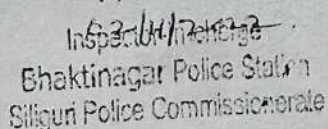 Inspector-in-charge
Bhaktinagar Police Station
Siliguri Police Commissionerate